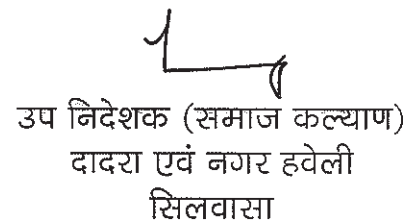 उप निदेशक (समाज कल्याण)
दादरा एवं नगर हवेली
सिलवासा